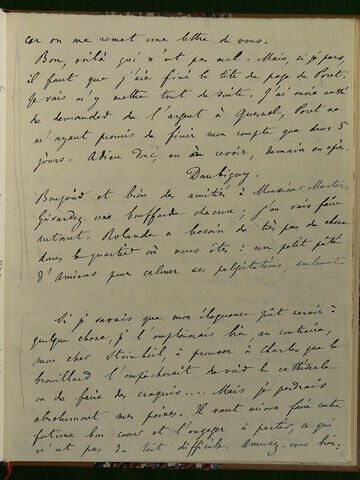 car on me remet une lettre de vous.
Bon, voilà qui n'est pas mal. Mais, si je pars,
il faut que j'aie fini la tête du page de Poret.
Je vais m'y mettre tout de suite. J'ai envie aussi
de demander de l'argent à Quesnel, Poret ne
m'ayant promis de finir mon compte que dans 5
jours. Adieu donc, ou au revoir, demain ou après.
Daubigny.
Bonjour et bien des amitiés à Monsieur
Girardez une bouffarde chacun; j'en vais faire
autant. Rolande a besoin de très peu de chose
dans le quartier où vous êtes: un petit pâté
d'Amiens pour calmer ses palpitations, seulement.
Si je savais que mon éloquence pût servir à
quelque chose, je l'emploierais bien, au contraire,
mon cher Steinheil, à prouver à Charles que le
brouillard l'empêcherait de voir la cathédrale
ou de faire des croquis.... Mais je perdrais
absolument mes peines. Il vaut mieux faire contre
fortune bon cœur et l'engager à partir, ce qui
n'est pas du tout difficile. Amusez-vous bien.